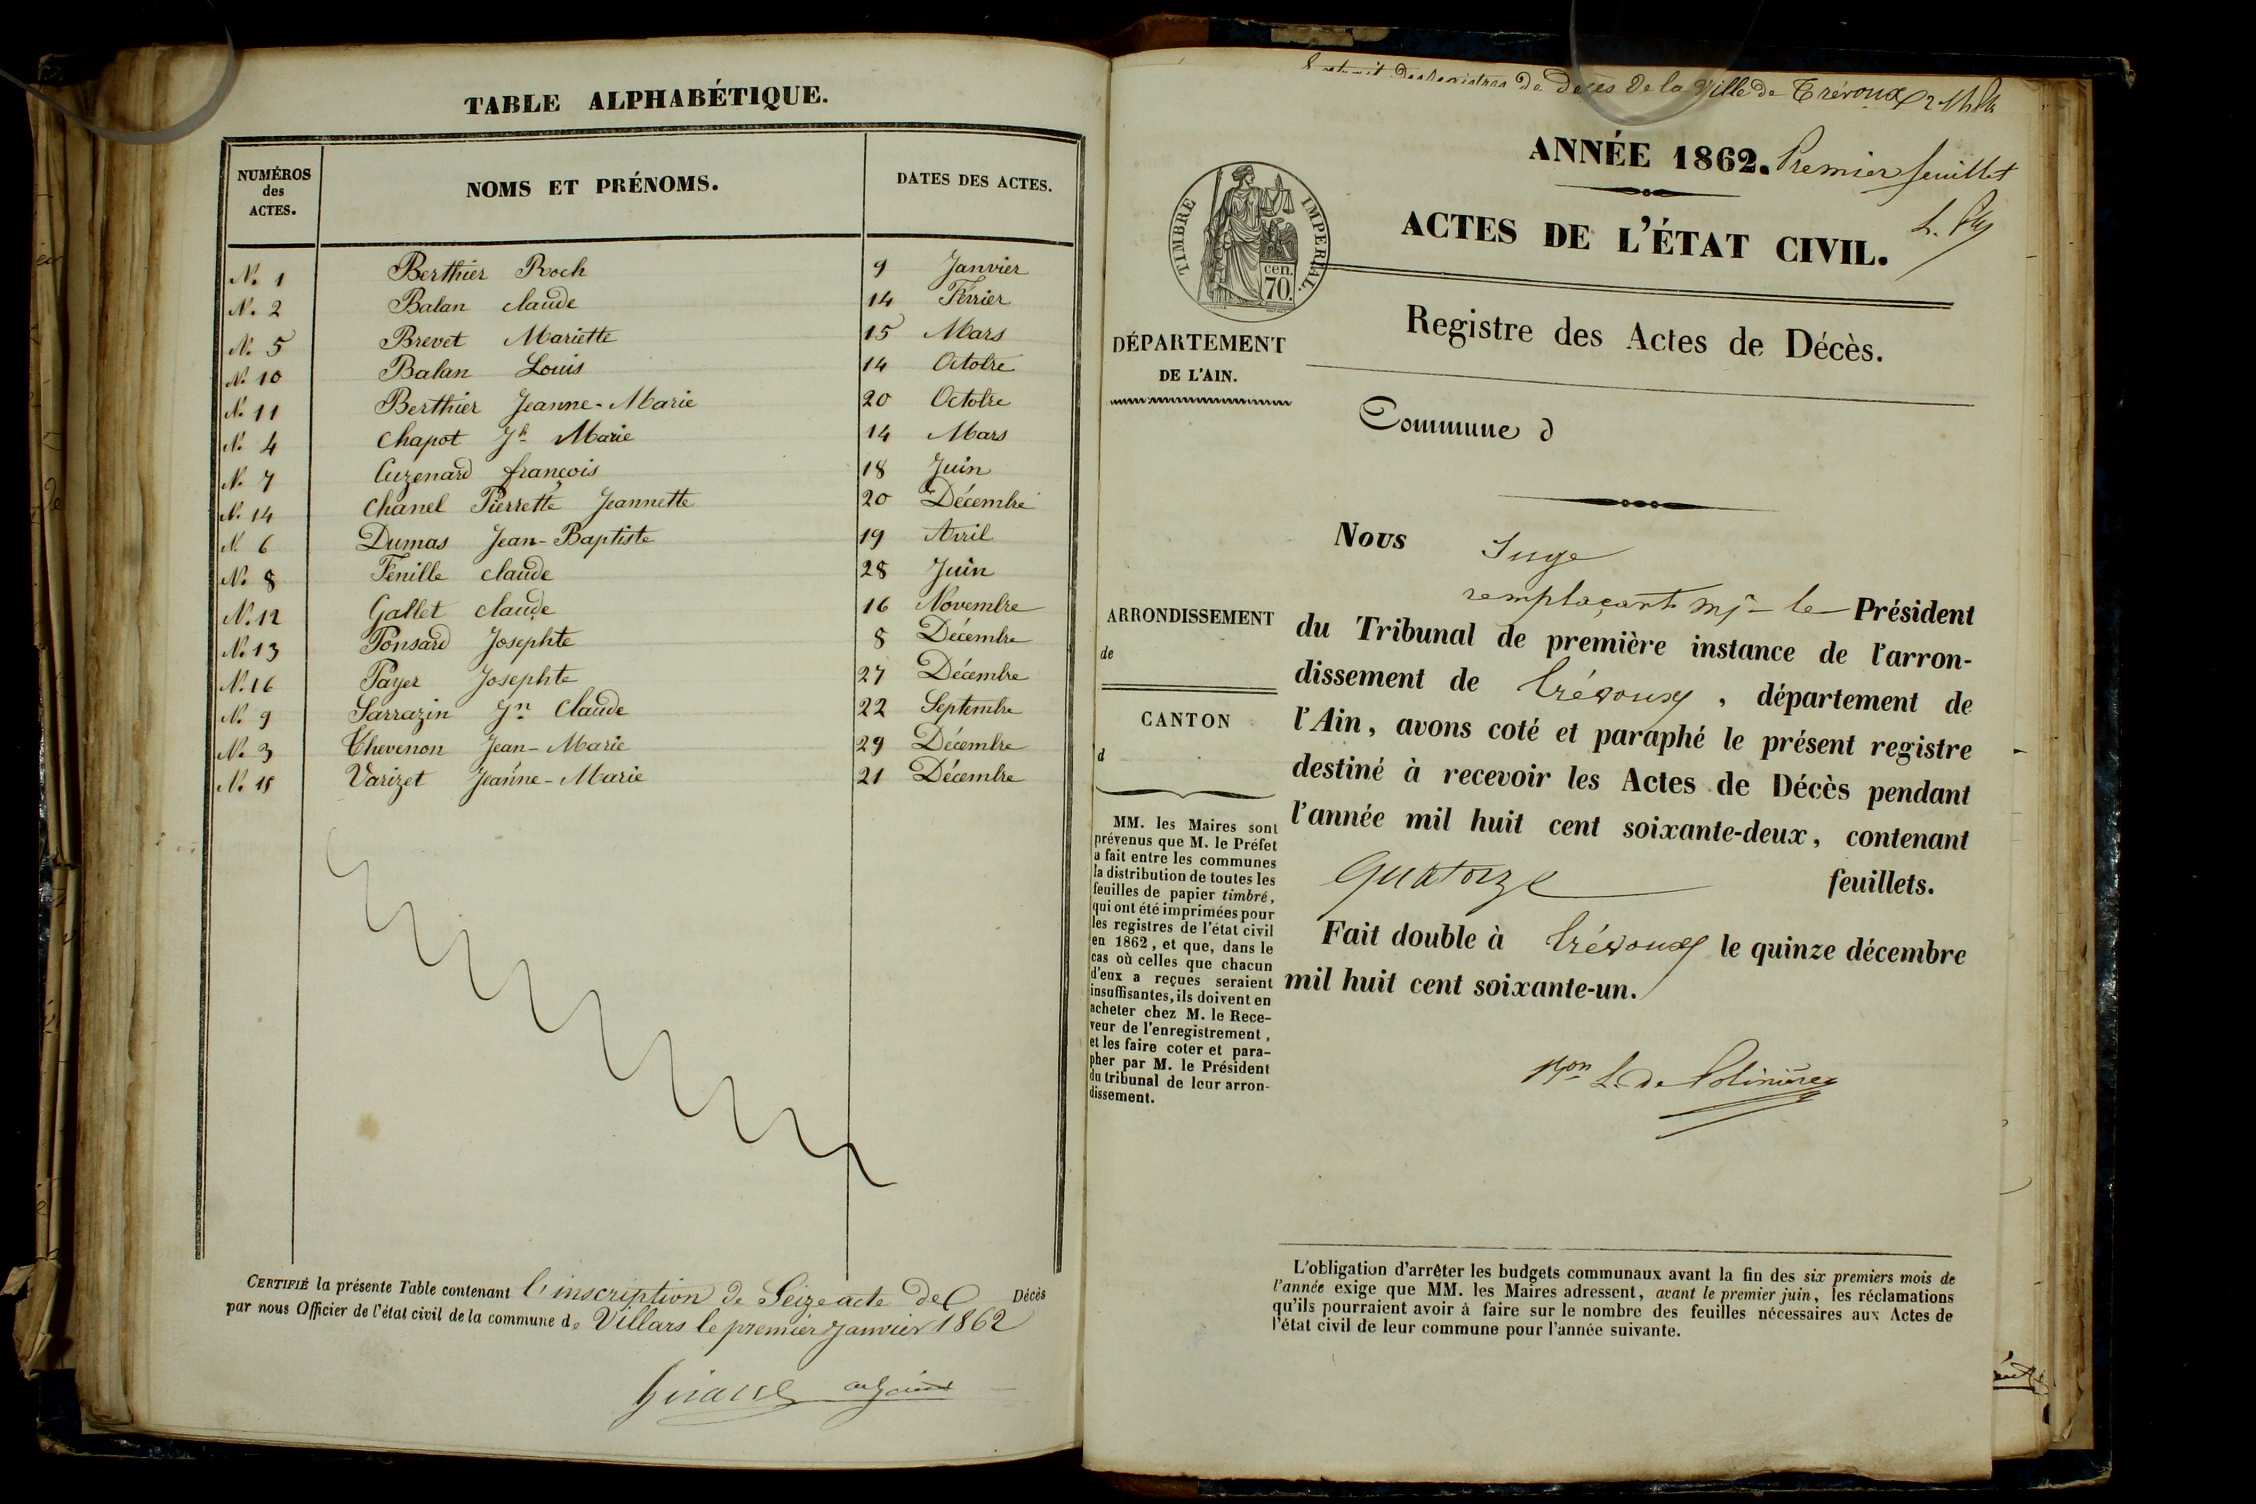 TABLE ALPHABÉTIQUE.
NUMÉROS des ACTES.
NOMS ET PRÉNOMS.
DATES DES ACTES.
N. 1 Berthier Roch 9 Janvier
N. 2 Balan claude 14 Février
N. 5 Brevet Mariette 15 Mars
N. 10 Balan Louis 14 Octobre
N. 11 Berthier Jeanne-Marie 20 Octobre
N. 4 Chapot Jh Marie 14 Mars
N. 7 Cuzenard françois 18 Juin
N. 14 Chanel Pierrette Jeannette 20 Décembre
N. 6 Dumas Jean-Baptiste 19 Avril
N. 8 Fenille claude 28 Juin
N. 12 Gallet claude 16 Novembre
N. 13 Ponsard Josephte 8 Décembre
N. 16 Payer Josephte 27 Décembre
N. 9 Sarrazin Jn Claude 22 Septembre
N. 3 Thevenon Jean-Marie 29 Décembre
N. 15 Varizet Jeanne-Marie 21 Décembre
CERTIFIÉ la présente Table contenant l'inscription de Seize acte de Décès
par nous Officier de l'état civil de la commune de Villars le premier Janvier 1862
adjoint
Extrait des registres de décès de la Ville de Trévoux
ANNÉE 1862. Premier feuillet
ACTES DE L'ÉTAT CIVIL.
TIMBRE IMPERIAL.
cen.
70.
Registre des Actes de Décès.
DÉPARTEMENT
DE L'AIN.
Commune d
ARRONDISSEMENT
de
CANTON
d
MM. les Maires sont
prévenus que M. le Préfet
a fait entre les communes
la distribution de toutes les
feuilles de papier timbré,
qui ont été imprimées pour
les registres de l'état civil
en 1862, et que, dans le
cas où celles que chacun
d'eux a reçues seraient
insuffisantes, ils doivent en
acheter chez M. le Rece-
veur de l'enregistrement,
et les faire coter et para-
pher par M. le Président
du tribunal de leur arron-
dissement.
Nous Juge
remplaçant Mr le Président
du Tribunal de première instance de l'arron-
dissement de Trévoux, département de
l'Ain, avons coté et paraphé le présent registre
destiné à recevoir les Actes de Décès pendant
l'année mil huit cent soixante-deux, contenant
quatorze feuillets.
Fait double à Trévoux le quinze décembre
mil huit cent soixante-un.
L. de Polinière
L'obligation d'arrêter les budgets communaux avant la fin des six premiers mois de
l'année exige que MM. les Maires adressent, avant le premier juin, les réclamations
qu'ils pourraient avoir à faire sur le nombre des feuilles nécessaires aux Actes de
l'état civil de leur commune pour l'année suivante.